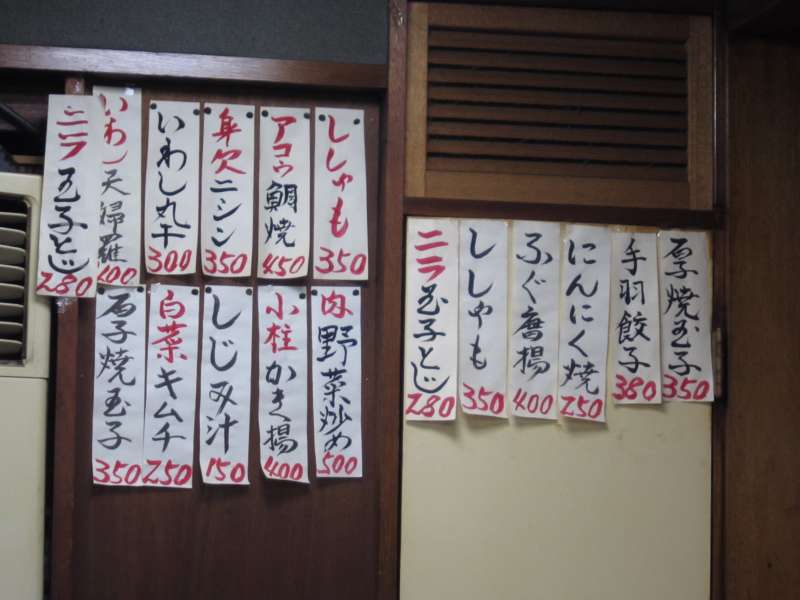 ししゃも 350
アコウ鯛焼 450
身欠ニシン 350
いわし丸干 300
いわし天婦羅 400
ニラ玉子とじ 280
肉野菜炒め 500
小柱かき揚 400
しじみ汁 150
白菜キムチ 250
厚焼玉子 350
厚焼玉子 350
手羽餃子 380
にんにく焼 250
ふぐ唐揚 400
ししゃも 350
ニラ玉子とじ 280